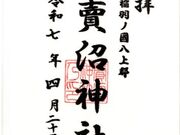 奉拝
因幡ノ國八上郡
賣沼神社
令和七年四月二十